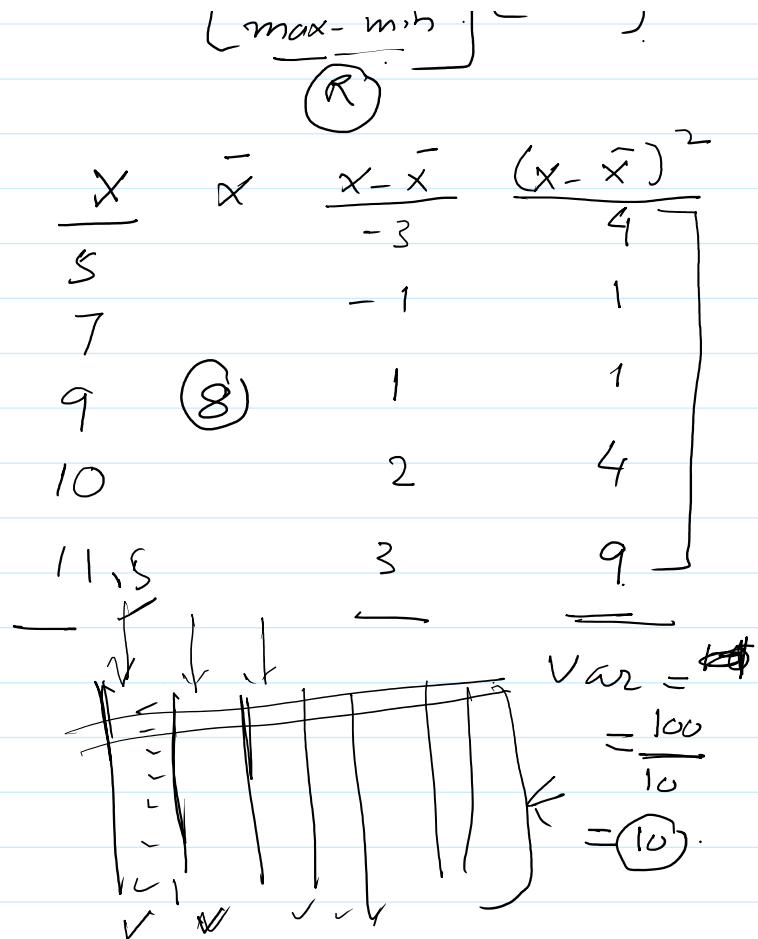 [max - min]
R
x x̄ x - x̄ (x - x̄)²
-3 4
5
-1 1
7
9 8 1 1
10 2 4
11.5 3 9
Var =
= 100/10
= 10.